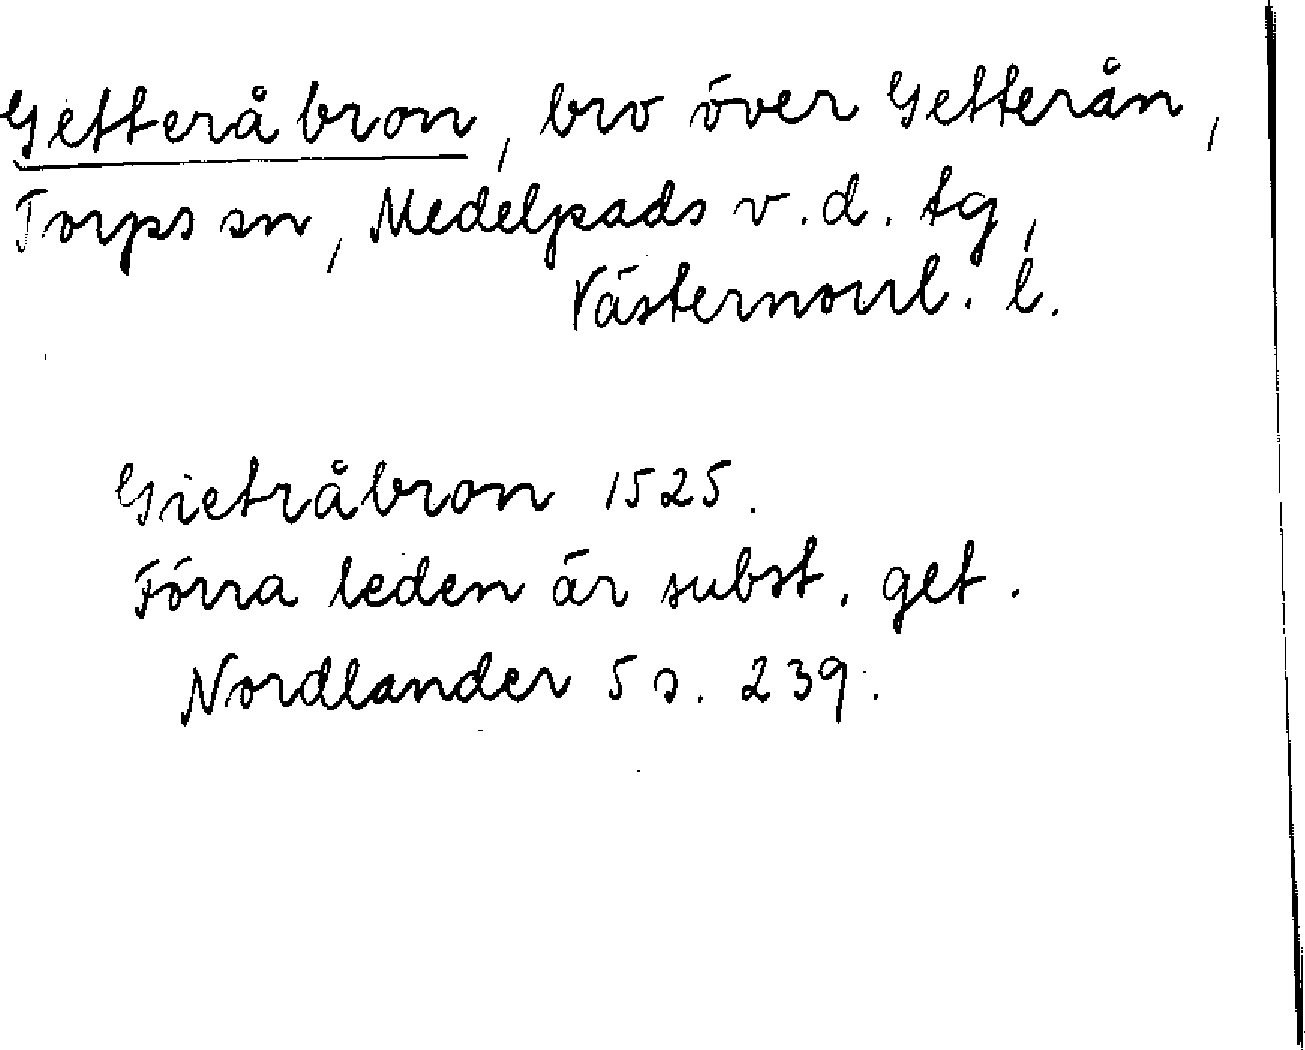 Getteråbron, bro över Getterån,
Torps sn, Medelpads v. d. tg,
Västernorrl. l.
Gietråbron 1525.
Förra leden är subst. get.
Nordlander 5 s. 239.